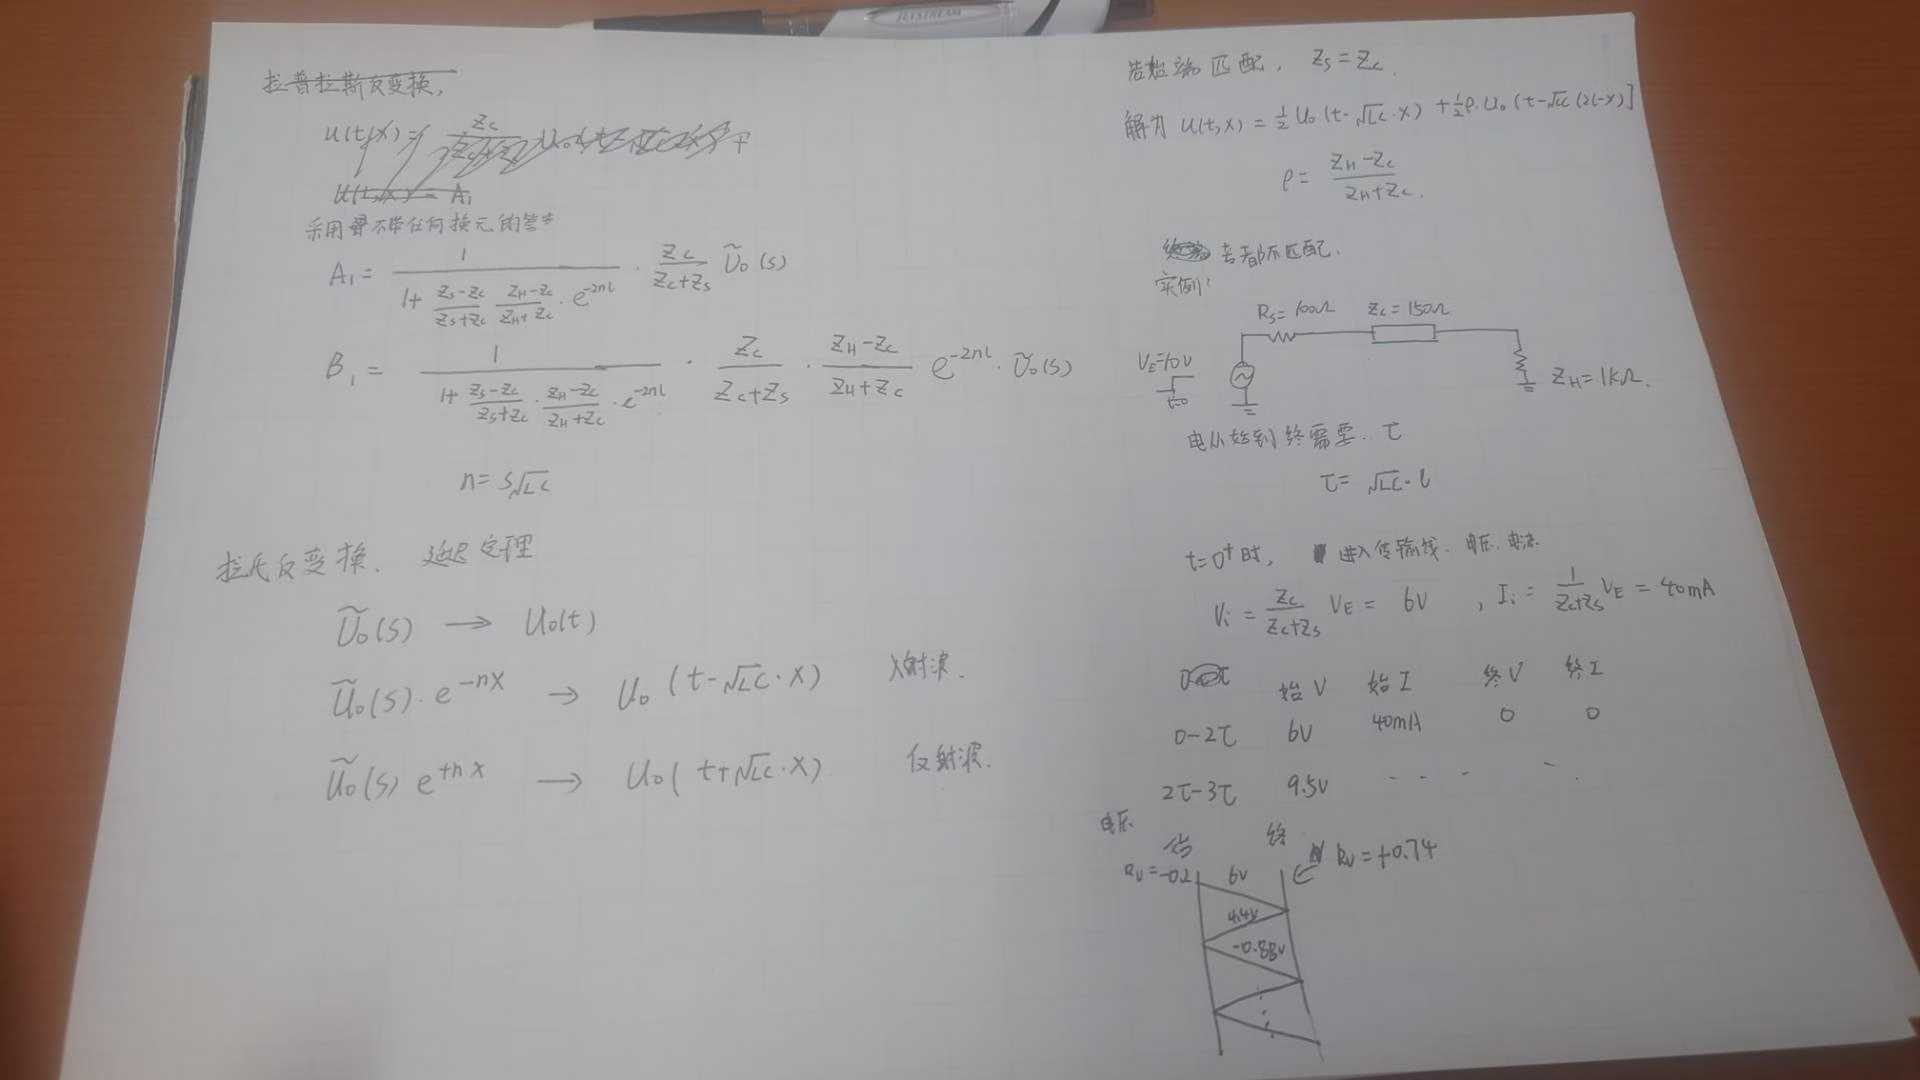 JETSTREAM
拉普拉斯反变换,
u(t,x)= Zc
u(t,x) = A1
采用最不带任何换元的
A1 = 1 / (1+ (Zs-Zc)/(Zs+Zc) (ZH-Zc)/(ZH+Zc) · e^-2nl) · Zc/(Zc+Zs) Ũ0(s)
B1 = 1 / (1+ (Zs-Zc)/(Zs+Zc) · (ZH-Zc)/(ZH+Zc) · e^-2nl) · Zc/(Zc+Zs) · (ZH-Zc)/(ZH+Zc) e^-2nl · Ũ0(s)
n= s√LC
拉氏反变换、 延迟定理
Ũ0(s) → U0(t)
Ũ0(s) · e^-nx → U0 (t-√LC·x) 入射波.
Ũ0(s) e^+nx → U0( t+√LC·x) 反射波.
若始端匹配, Zs=Zc.
解为 U(t,x) = ½ U0 (t-√LC·x) + ½ρ·U0 (t-√LC (2l-x)]
ρ= (ZH-Zc)/(ZH+Zc).
若都不匹配.
实例:
Rs=100Ω Zc=150Ω
VE=10V
t=0
ZH=1kΩ.
电从始到终需要.. τ
τ= √LC·l
t=0⁺时, 进入传输线. 电压. 电流.
Vi = Zc/(Zc+Zs) VE = 6V , Ii = 1/(Zc+Zs) VE = 40mA
始V 始I 终V 终I
0-2τ 6V 40mA 0 0
2τ-3τ 9.5V - - - -.
电压.
始 终
Rv=-0.2 6V Rv=+0.74
4.4V
-0.88V